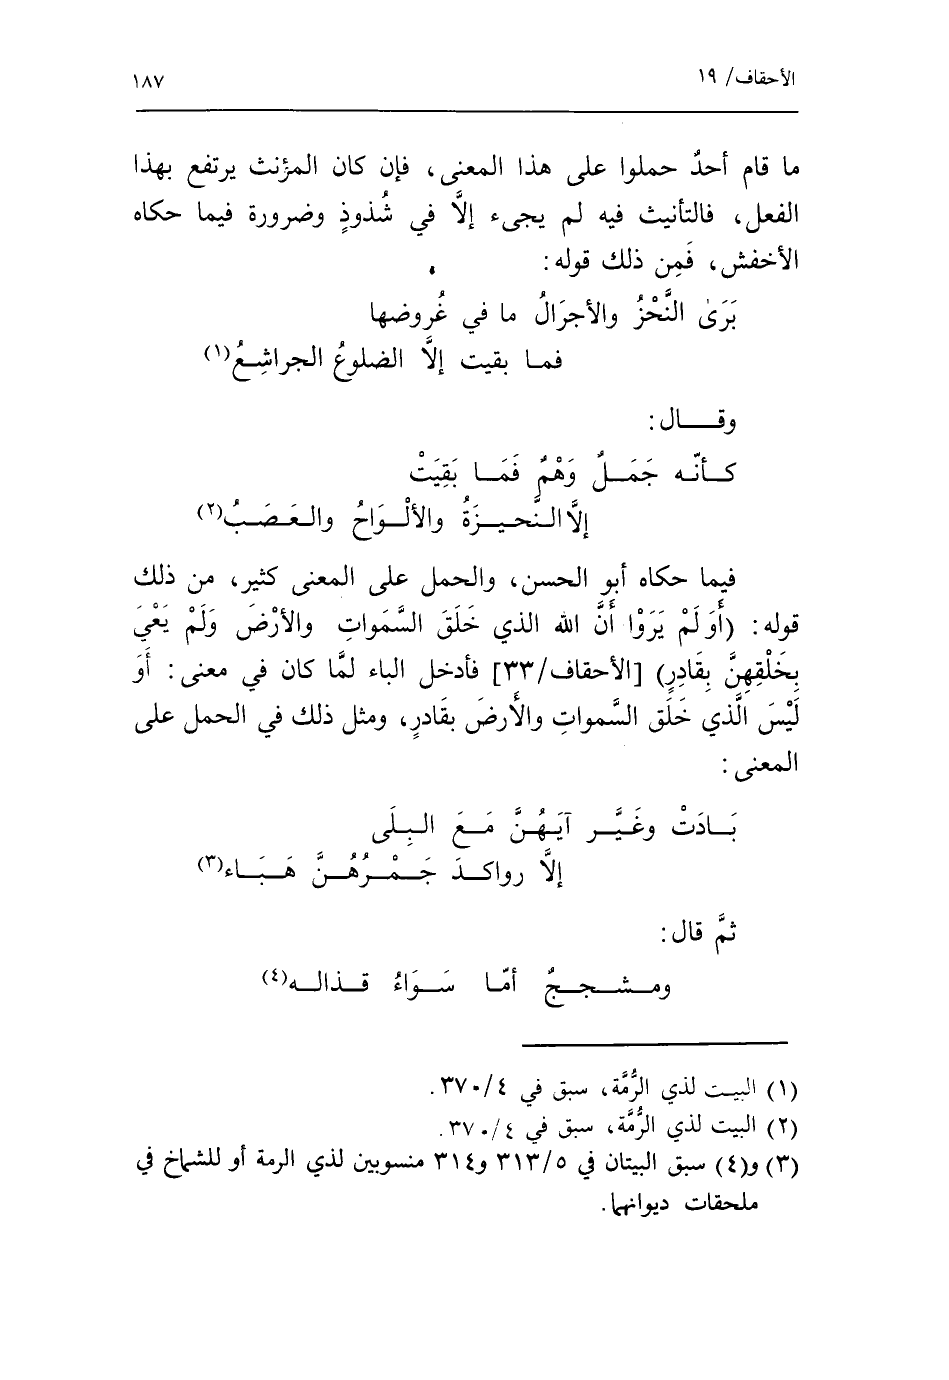 الأحقاف/ ١٩
١٨٧
ما قام أحدٌ حملوا على هذا المعنى، فإن كان المؤنث يرتفع بهذا
الفعل، فالتأنيث فيه لم يجىء إلَّا في شُذوذٍ وضرورة فيما حكاه
الأخفش، فَمِن ذلك قوله:
بَرَىٰ النَّحْزُ والأجرَالُ ما في غُروضها
فمـا بقيت إلَّا الضلوعُ الجراشِـعُ(١)
وقـــال:
كـأنّـه جَمَـلٌ وَهْمٌ فَمَـا بَقِيَتْ
إلَّا النَّحيـزَةُ والألْـوَاحُ والـعَـصَـبُ(٢)
فيما حكاه أبو الحسن، والحمل على المعنى كثير، من ذلك
قوله: (أَوَ لَمْ يَرَوْا أَنَّ الله الذي خَلَقَ السَّمَواتِ والأرْضَ وَلَمْ يَعْيَ
بِخَلْقِهِنَّ بِقَادِرٍ) [الأحقاف/٣٣] فأدخل الباء لمَّا كان في معنى: أَوَ
لَيْسَ الَّذي خَلَق السَّمواتِ والأَرضَ بقَادرٍ، ومثل ذلك في الحمل على
المعنى:
بَـادَتْ وغَيَّـر آيَـهُـنَّ مَـعَ الـبِـلَى
إلَّا رواكـدَ جَـمْـرُهُـنَّ هَـبَـاء(٣)
ثمَّ قال:
ومـشـجـجٌ أمّـا سَـوَاءُ قـذالـه(٤)
(١) البيت لذي الرُّمَّة، سبق في ٤/ ٣٧٠.
(٢) البيت لذي الرُّمَّة، سبق في ٤/ ٣٧٠.
(٣) و(٤) سبق البيتان في ٥/ ٣١٣ و٣١٤ منسوبين لذي الرمة أو للشماخ في
ملحقات ديوانهما.